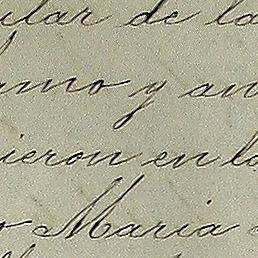 ular de la
smo y an
ieron en la
Maria